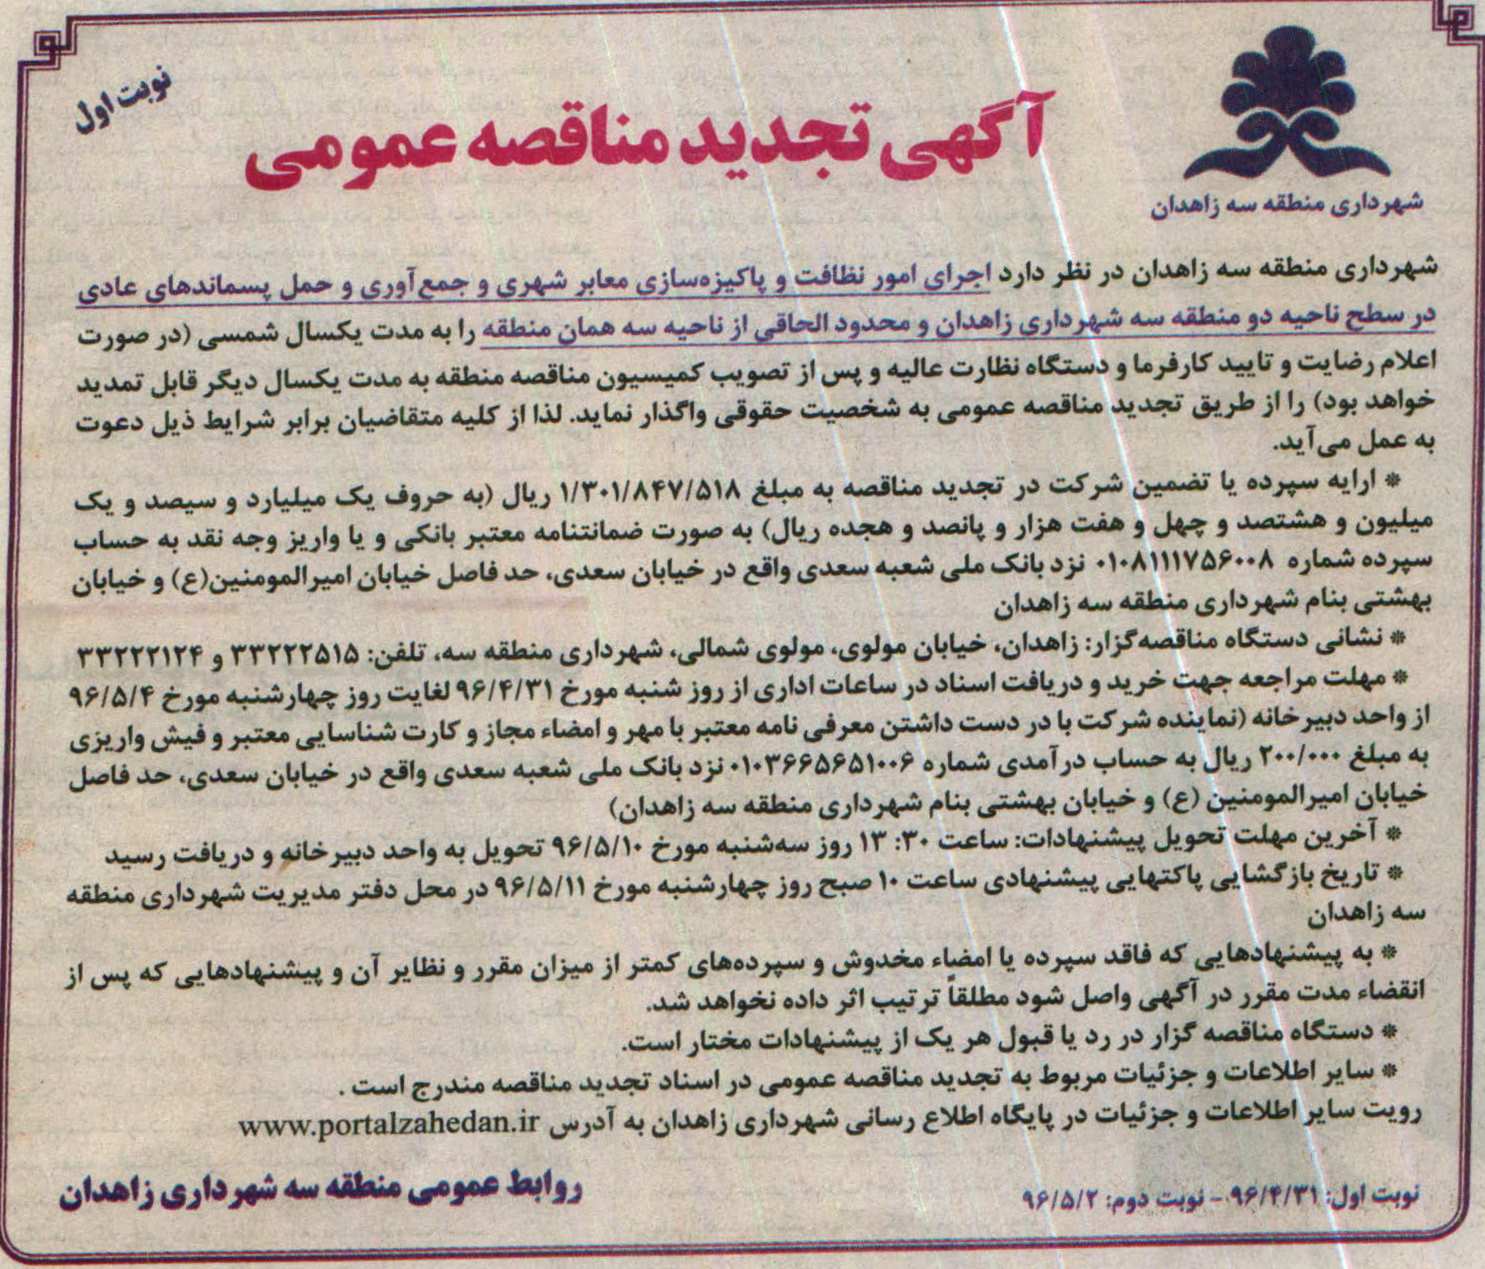 نوبت اول
آگهی تجدید مناقصه عمومی
شهرداری منطقه سه زاهدان
شهرداری منطقه سه زاهدان در نظر دارد اجرای امور نظافت و پاکیزه‌سازی معابر شهری و جمع‌آوری و حمل پسماندهای عادی
در سطح ناحیه دو منطقه سه شهرداری زاهدان و محدود الحاقی از ناحیه سه همان منطقه را به مدت یکسال شمسی (در صورت
اعلام رضایت و تایید کارفرما و دستگاه نظارت عالیه و پس از تصویب کمیسیون مناقصه منطقه به مدت یکسال دیگر قابل تمدید
خواهد بود) را از طریق تجدید مناقصه عمومی به شخصیت حقوقی واگذار نماید. لذا از کلیه متقاضیان برابر شرایط ذیل دعوت
به عمل می‌آید.
* ارایه سپرده یا تضمین شرکت در تجدید مناقصه به مبلغ ۱/۳۰۱/۸۴۷/۵۱۸ ریال (به حروف یک میلیارد و سیصد و یک
میلیون و هشتصد و چهل و هفت هزار و پانصد و هجده ریال) به صورت ضمانتنامه معتبر بانکی و یا واریز وجه نقد به حساب
سپرده شماره ۰۱۰۸۱۱۱۷۵۶۰۰۸ نزد بانک ملی شعبه سعدی واقع در خیابان سعدی، حد فاصل خیابان امیرالمومنین(ع) و خیابان
بهشتی بنام شهرداری منطقه سه زاهدان
* نشانی دستگاه مناقصه‌گزار: زاهدان، خیابان مولوی، مولوی شمالی، شهرداری منطقه سه، تلفن: ۳۳۲۲۲۵۱۵ و ۳۳۲۲۲۱۲۴
* مهلت مراجعه جهت خرید و دریافت اسناد در ساعات اداری از روز شنبه مورخ ۹۶/۴/۳۱ لغایت روز چهارشنبه مورخ ۹۶/۵/۴
از واحد دبیرخانه (نماینده شرکت با در دست داشتن معرفی نامه معتبر با مهر و امضاء مجاز و کارت شناسایی معتبر و فیش واریزی
به مبلغ ۲۰۰/۰۰۰ ریال به حساب درآمدی شماره ۰۱۰۳۶۶۵۶۵۱۰۰۶ نزد بانک ملی شعبه سعدی واقع در خیابان سعدی، حد فاصل
خیابان امیرالمومنین (ع) و خیابان بهشتی بنام شهرداری منطقه سه زاهدان)
* آخرین مهلت تحویل پیشنهادات: ساعت ۳۰: ۱۳ روز سه‌شنبه مورخ ۹۶/۵/۱۰ تحویل به واحد دبیرخانه و دریافت رسید
* تاریخ بازگشایی پاکتهایی پیشنهادی ساعت ۱۰ صبح روز چهارشنبه مورخ ۹۶/۵/۱۱ در محل دفتر مدیریت شهرداری منطقه
سه زاهدان
* به پیشنهادهایی که فاقد سپرده یا امضاء مخدوش و سپرده‌های کمتر از میزان مقرر و نظایر آن و پیشنهادهایی که پس از
انقضاء مدت مقرر در آگهی واصل شود مطلقاً ترتیب اثر داده نخواهد شد.
* دستگاه مناقصه گزار در رد یا قبول هر یک از پیشنهادات مختار است.
* سایر اطلاعات و جزئیات مربوط به تجدید مناقصه عمومی در اسناد تجدید مناقصه مندرج است .
رویت سایر اطلاعات و جزئیات در پایگاه اطلاع رسانی شهرداری زاهدان به آدرس www.portalzahedan.ir
نوبت اول: ۹۶/۴/۳۱ - نوبت دوم: ۹۶/۵/۲
روابط عمومی منطقه سه شهرداری زاهدان